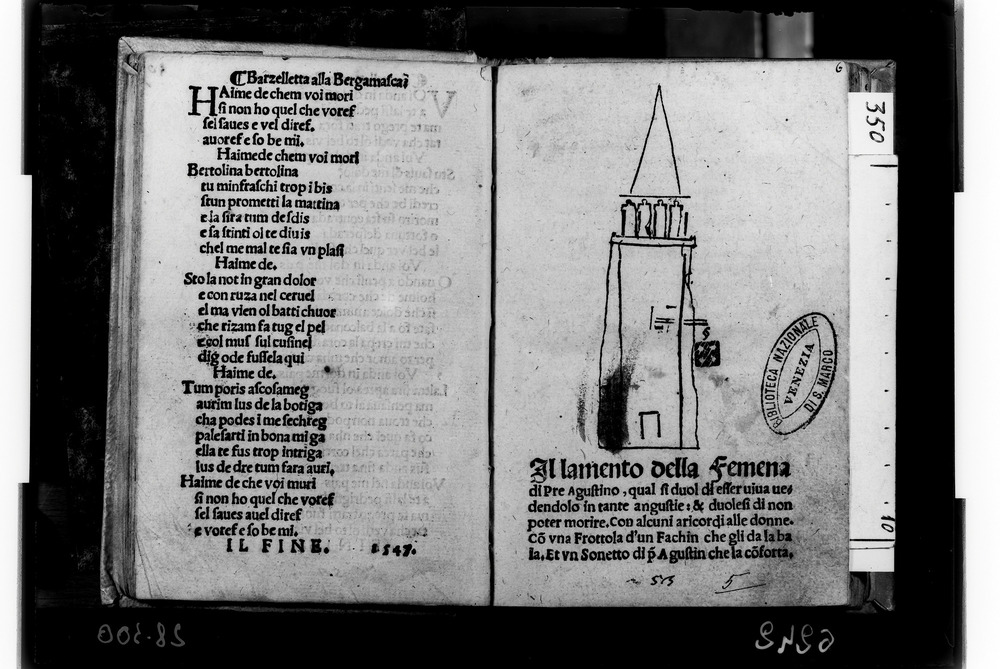 ❡Barzelletta alla Bergamascaĩ
HAime de chem voi mori
si non ho quel che voref
sel saues e vel diref.
auoref e so be mi.
Haimede chem voi mori
Bertolina bertolina
tu minfraschi trop i bis
stun prometti la mattina
e la sira tum desdis
e sa stinti ol te diuis
chel me mal te sia vn plasi
Haime de.
Sto la not in gran dolor
e con ruza nel ceruel
el ma vien ol batti chuor
che rizam fa tug el pel
e col mus sul cusinel
dig ode fussela qui
Haime de.
Tum poris ascosameg
aurim lus de la botiga
cha podes i me sechreg
palesarti in bona miga
ella te fus trop intriga
lus de dre tum fara auri.
Haime de che voi muri
si non ho quel che voref
sel saues auel diref
e voref e so be mi.
IL FINE. 1547.
6
350
10
BIBLIOTECA NAZIONALE
VENEZIA
DI S. MARCO
Il lamento della Femena
di Pre Agustino, qual si duol di esser uiua ue⸗
dendolo in tante angustie: & duolesi di non
poter morire. Con alcuni aricordi alle donne.
Cõ vna Frottola d'un Fachin che gli da la ba
ia. Et vn Sonetto di p̃ Agustin che la cõforta.
513 5
28.300
6242